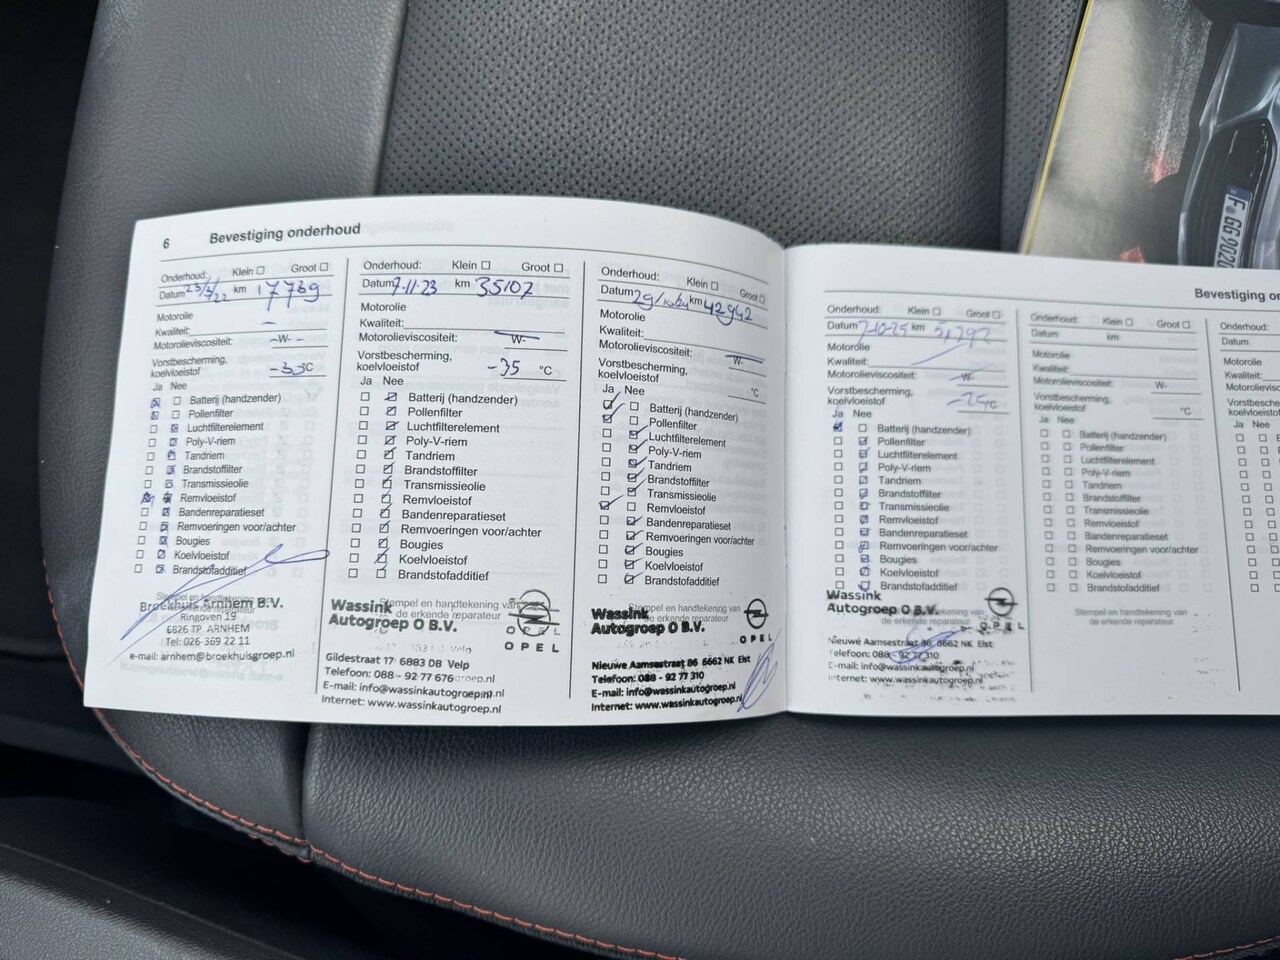 6 Bevestiging onderhoud
Onderhoud: Klein Groot
Datum 23/3/22 km 17769
Motorolie
Kwaliteit:
Motorolieviscositeit: -W-
Vorstbescherming,
koelvloeistof -33°C
Ja Nee
Batterij (handzender)
Pollenfilter
Luchtfilterelement
Poly-V-riem
Tandriem
Brandstoffilter
Transmissieolie
Remvloeistof
Bandenreparatieset
Remvoeringen voor/achter
Bougies
Koelvloeistof
Brandstofadditief
Stempel en handtekening
Broekhuis Arnhem B.V.
Ringoven 19
6826 TP ARNHEM
Tel: 026-369 22 11
e-mail: arnhem@broekhuisgroep.nl
Onderhoud: Klein Groot
Datum 7-11-23 km 35107
Motorolie
Kwaliteit:
Motorolieviscositeit: W-
Vorstbescherming,
koelvloeistof -35 °C
Ja Nee
Batterij (handzender)
Pollenfilter
Luchtfilterelement
Poly-V-riem
Tandriem
Brandstoffilter
Transmissieolie
Remvloeistof
Bandenreparatieset
Remvoeringen voor/achter
Bougies
Koelvloeistof
Brandstofadditief
Stempel en handtekening van
de erkende reparateur
Wassink
Autogroep O B.V.
OPEL
OPEL
Gildestraat 17 6883 DB Velp
Telefoon: 088 - 92 77 676
E-mail: info@wassinkautogroep.nl
Internet: www.wassinkautogroep.nl
Onderhoud: Klein Groot
Datum km 42942
Motorolie
Kwaliteit:
Motorolieviscositeit: W-
Vorstbescherming,
koelvloeistof °C
Ja Nee
Batterij (handzender)
Pollenfilter
Luchtfilterelement
Poly-V-riem
Tandriem
Brandstoffilter
Transmissieolie
Remvloeistof
Bandenreparatieset
Remvoeringen voor/achter
Bougies
Koelvloeistof
Brandstofadditief
Stempel en handtekening van
de erkende reparateur
Wassink
Autogroep O B.V.
OPEL
Nieuwe Aamsestraat 86 6662 NK Elst
Telefoon: 088 - 92 77 310
E-mail: info@wassinkautogroep.nl
Internet: www.wassinkautogroep.nl
Bevestiging
Onderhoud: Klein Groot
Datum 7-10-25 km
Motorolie
Kwaliteit:
Motorolieviscositeit: W-
Vorstbescherming,
koelvloeistof °C
Ja Nee
Batterij (handzender)
Pollenfilter
Luchtfilterelement
Poly-V-riem
Tandriem
Brandstoffilter
Transmissieolie
Remvloeistof
Bandenreparatieset
Remvoeringen voor/achter
Bougies
Koelvloeistof
Brandstofadditief
handtekening van
de erkende reparateur
Wassink
Autogroep O B.V.
OPEL
Nieuwe Aamsestraat 86 6662 NK Elst
Telefoon: 088 - 92 77 310
E-mail: info@wassinkautogroep.nl
Internet: www.wassinkautogroep.nl
Onderhoud: Klein Groot
Datum km
Motorolie
Kwaliteit:
Motorolieviscositeit: W-
Vorstbescherming,
koelvloeistof °C
Ja Nee
Batterij (handzender)
Pollenfilter
Luchtfilterelement
Poly-V-riem
Tandriem
Brandstoffilter
Transmissieolie
Remvloeistof
Bandenreparatieset
Remvoeringen voor/achter
Bougies
Koelvloeistof
Brandstofadditief
Stempel en handtekening van
de erkende reparateur
Onderhoud:
Datum
Motorolie
Kwaliteit:
Motorolievisc
Vorstbescherm
koelvloeistof
Ja Nee
F GG 9020